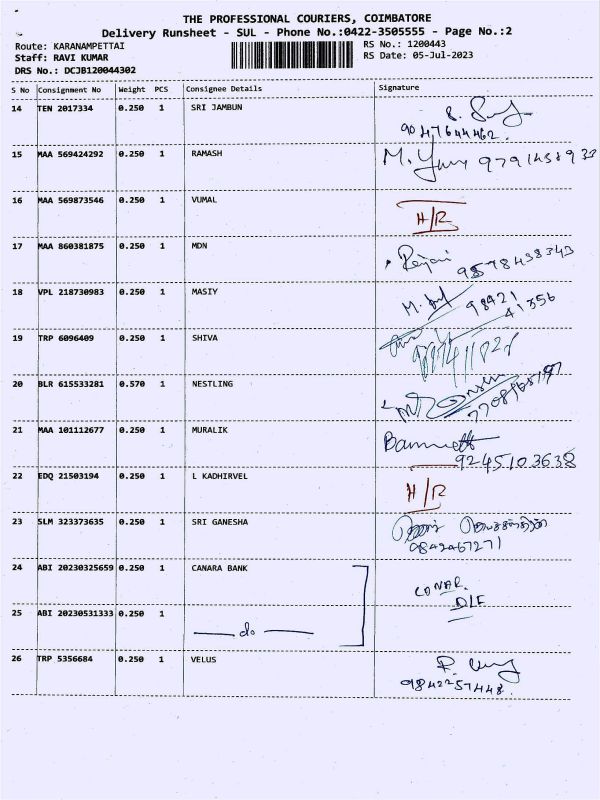 THE PROFESSIONAL COURIERS, COIMBATORE
Delivery Runsheet - SUL - Phone No.:0422-3505555 - Page No.:2
Route: KARANAMPETTAI RS No.: 1200443
Staff: RAVI KUMAR RS Date: 05-Jul-2023
DRS No.: DCJB120044302
S No Consignment No Weight PCS Consignee Details Signature
14 TEN 2017334 0.250 1 SRI JAMBUN
9047644462.
15 MAA 569424292 0.250 1 RAMASH M.
16 MAA 569873546 0.250 1 VUMAL H/R
17 MAA 860381875 0.250 1 MDN
9578438343
18 VPL 218730983 0.250 1 MASIY M. 98421
41356
19 TRP 6096409 0.250 1 SHIVA
20 BLR 615533281 0.570 1 NESTLING
21 MAA 101112677 0.250 1 MURALIK
9245103638
22 EDQ 21503194 0.250 1 L KADHIRVEL H/R
23 SLM 323373635 0.250 1 SRI GANESHA
9842467271
24 ABI 20230325659 0.250 1 CANARA BANK
25 ABI 20230531333 0.250 1
do
26 TRP 5356684 0.250 1 VELUS
9842257448.